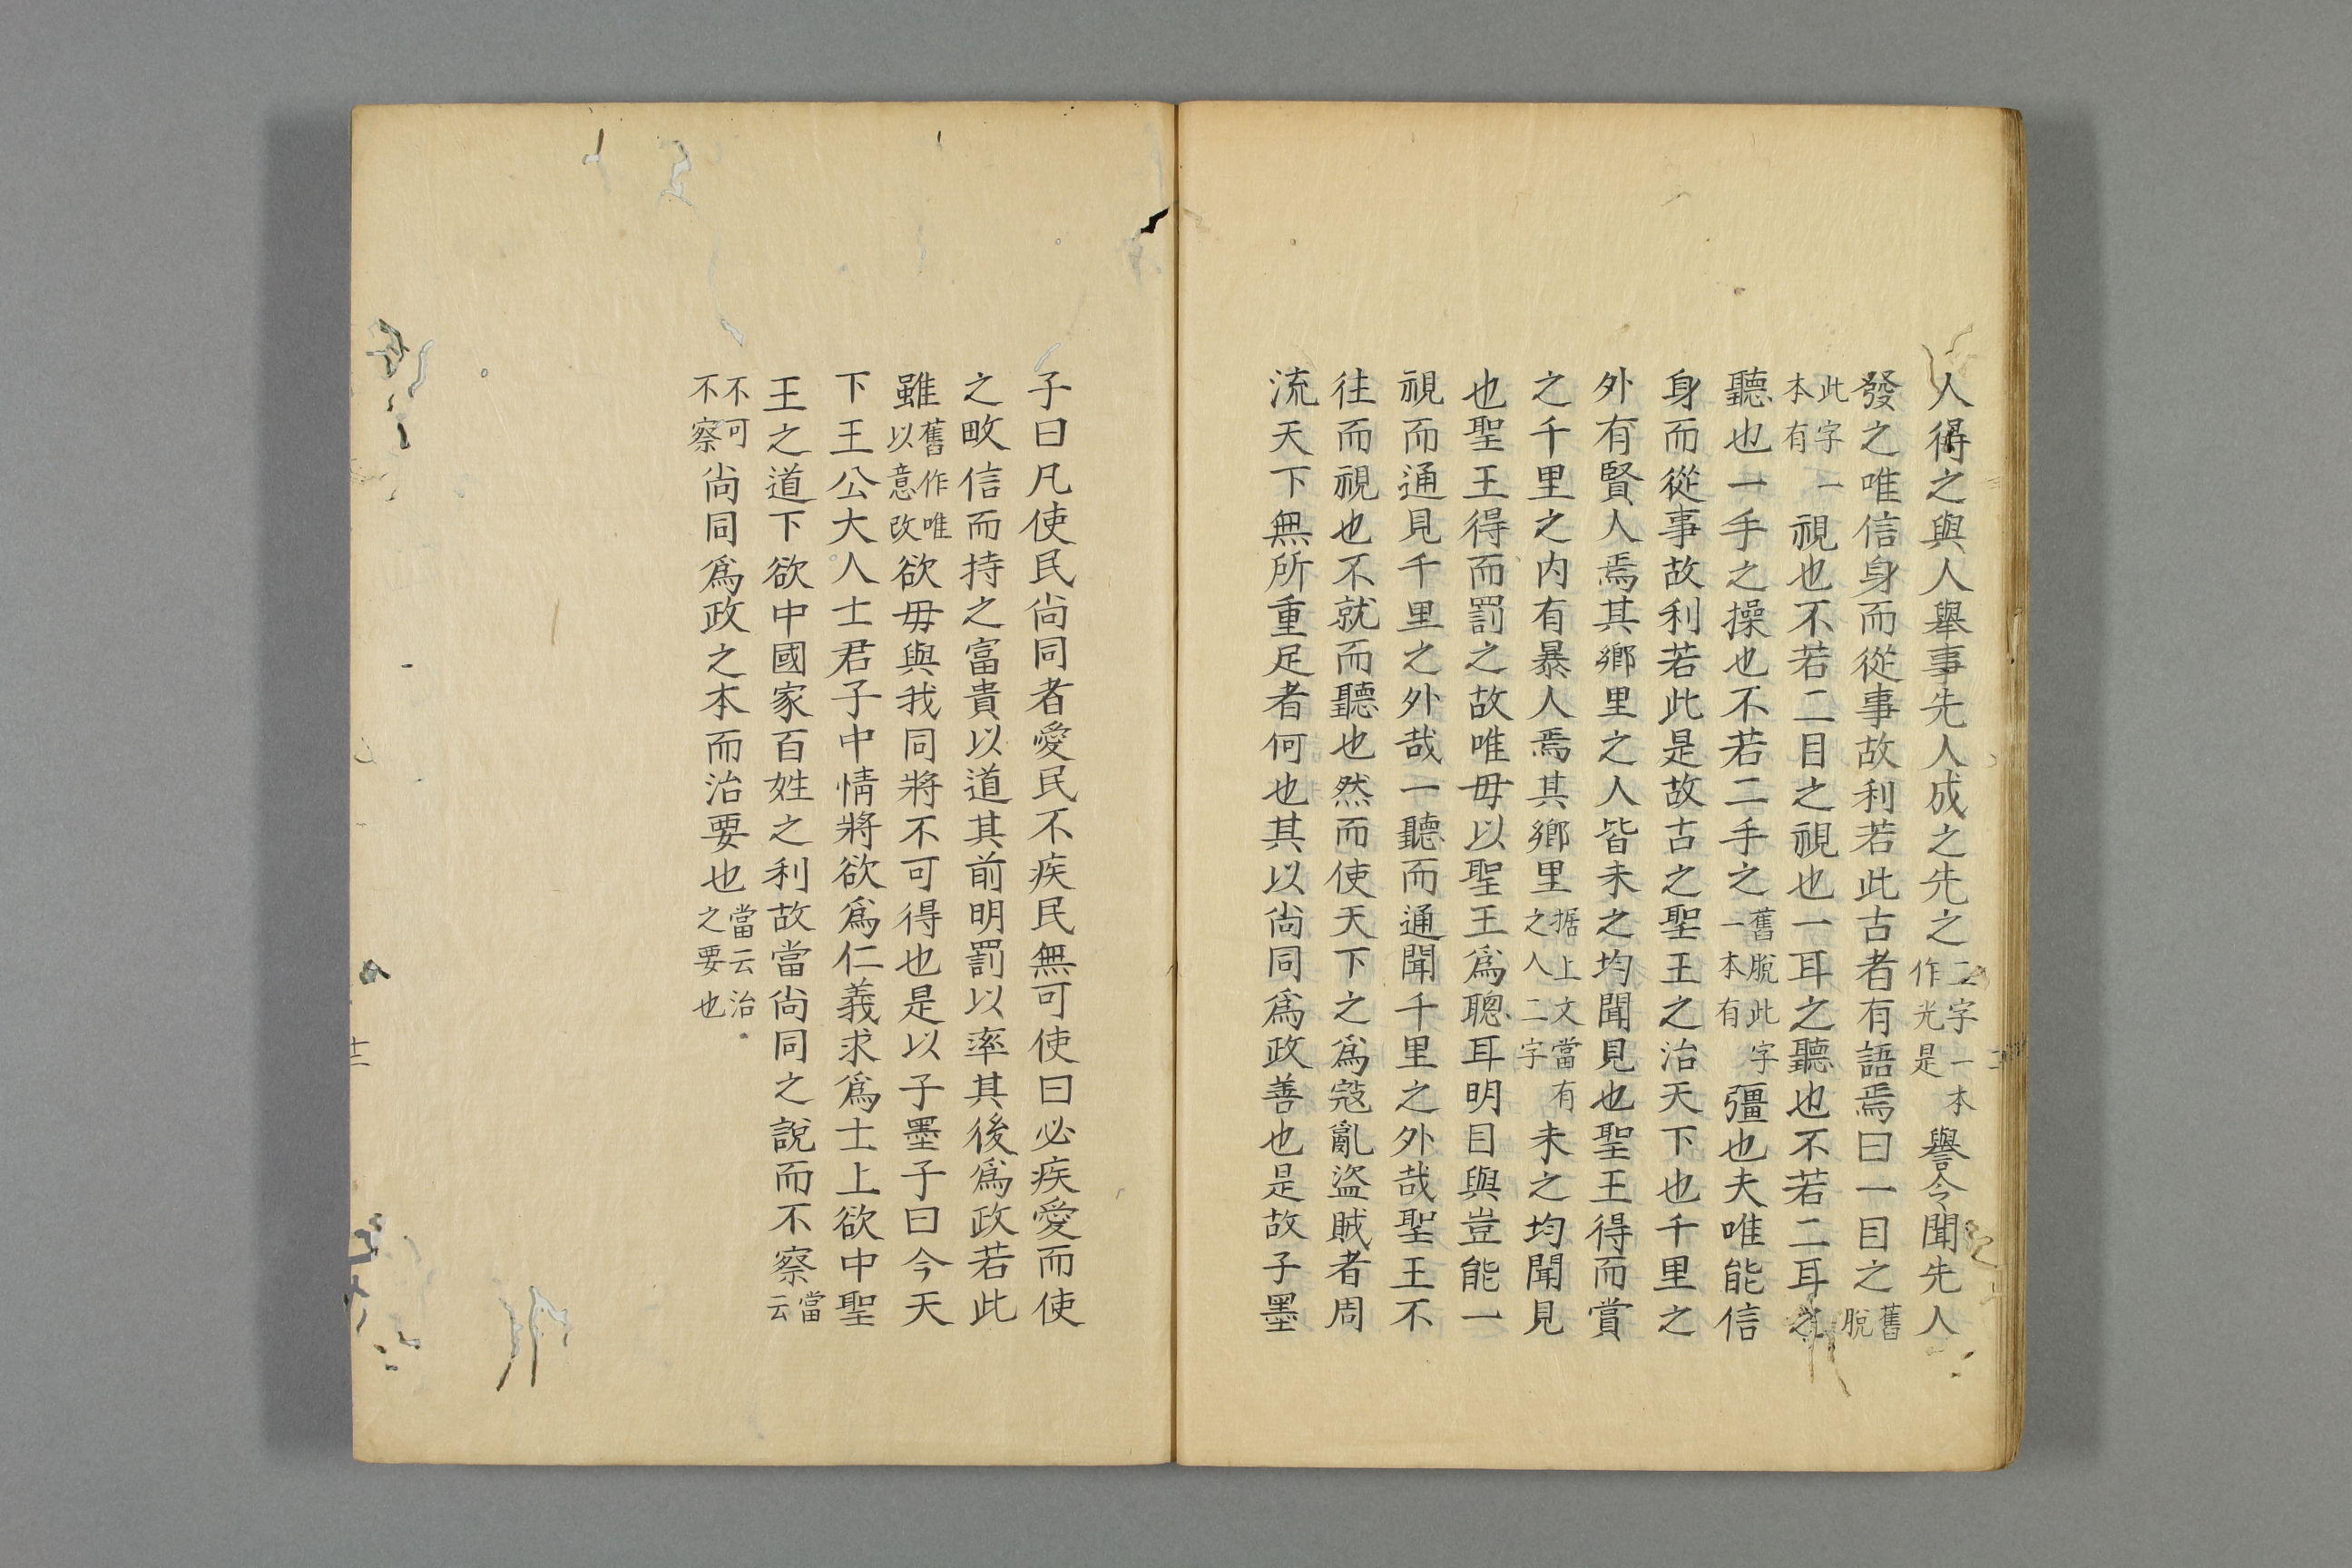 人得之與人舉事先人成之先之二字一本作光是譽令聞先人
發之唯信身而從事故利若此古者有語焉曰一目之舊脫
此字一本有視也不若二目之視也一耳之聽也不若二耳之
聽也一手之操也不若二手之舊脫此字一本有彊也夫唯能信
身而從事故利若此是故古之聖王之治天下也千里之
外有賢人焉其鄉里之人皆未之均聞見也聖王得而賞
之千里之內有暴人焉其鄉里据上文當有之人二字未之均聞見
也聖王得而罰之故唯毋以聖王爲聰耳明目與豈能一
視而通見千里之外哉一聽而通聞千里之外哉聖王不
往而視也不就而聽也然而使天下之爲寇亂盜賊者周
流天下無所重足者何也其以尚同爲政善也是故子墨
子曰凡使民尚同者愛民不疾民無可使曰必疾愛而使
之畋信而持之富貴以道其前明罰以率其後爲政若此
雖舊作唯以意改欲毋與我同將不可得也是以子墨子曰今天
下王公大人士君子中情將欲爲仁義求爲士上欲中聖
王之道下欲中國家百姓之利故當尚同之說而不察當云
不可不察尚同爲政之本而治要也當云治之要也
十三